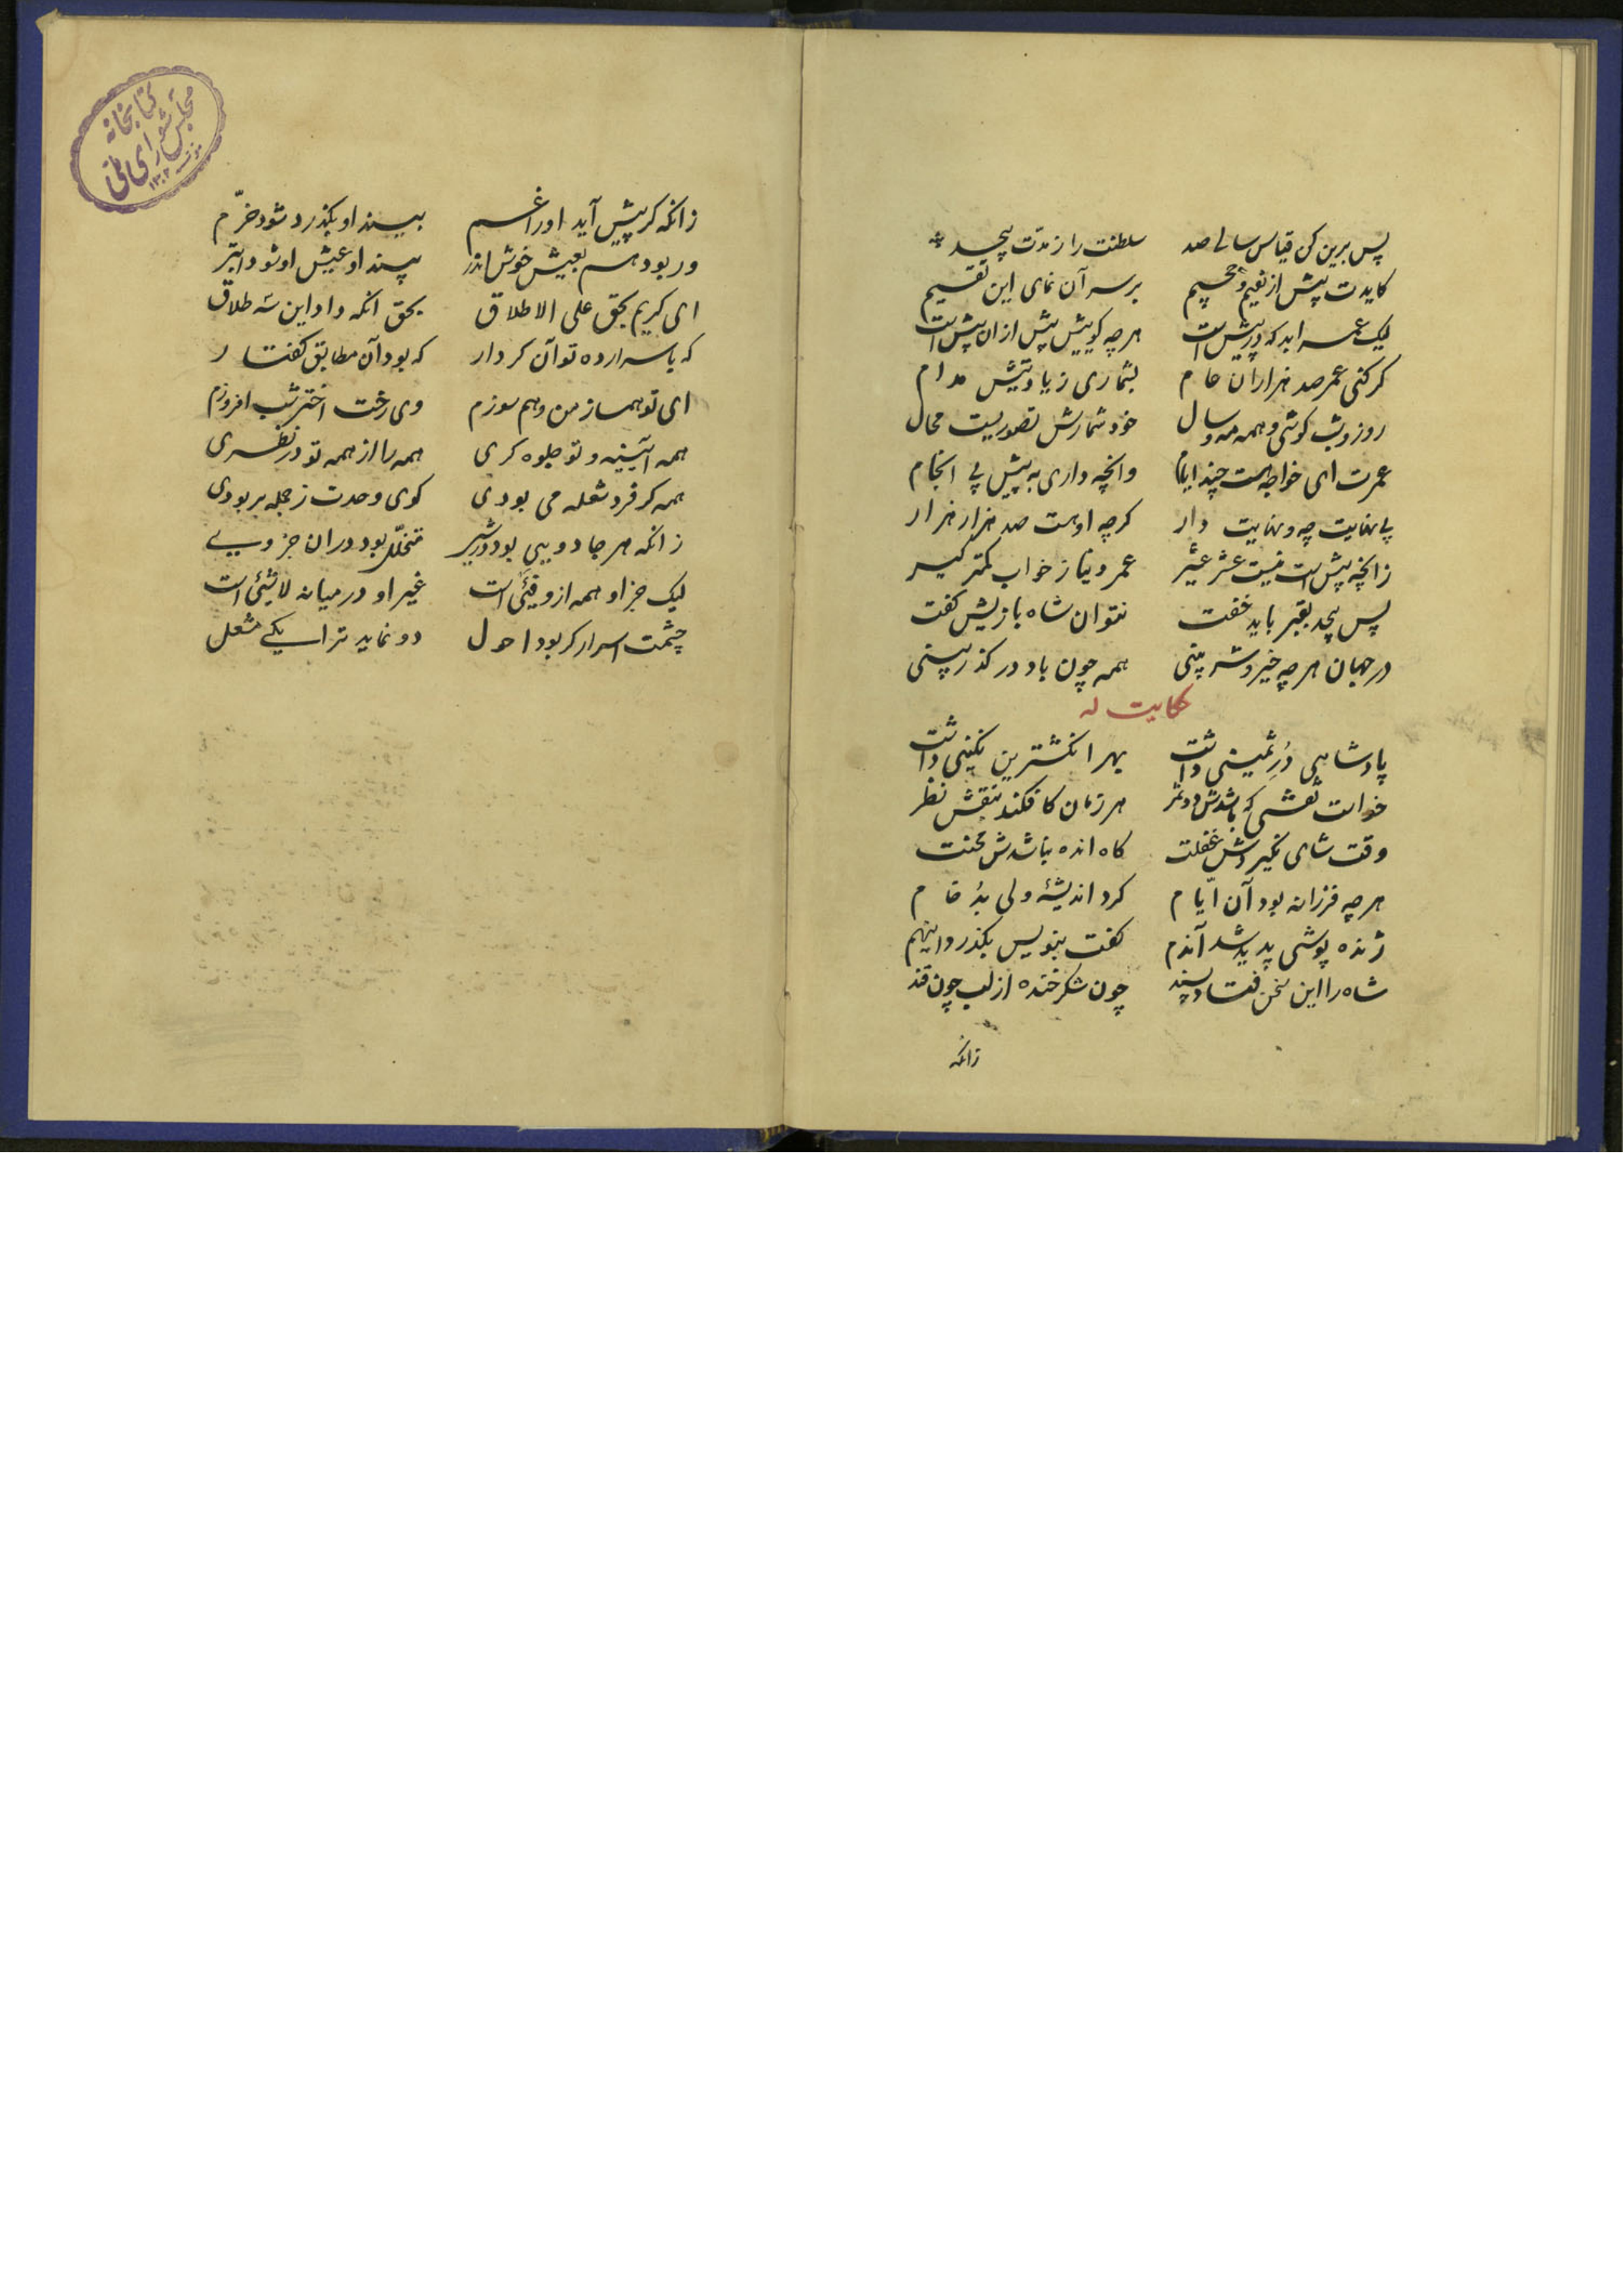 پس برین کن قیاس سالی صد سلطنت را ز مدت بیحد
کایدت پیش از نعیم و جحیم بر سر آن نمای این تقسیم
لیک عمر ابد که در پیش است هر چه گوییش بیش از ان بیش است
کر کنی عمر صد هزاران عام بشماری زیادتیش مدام
روز و شب کوشی و همه مه و سال خود شمارش تصوریست محال
عمرت ای خواجه هست چند ایام وانچه داری به پیش بی انجام
بی نهایت چه و نهایت دار کرچه اوست صد هزار هزار
زانچه پیش است نیست عشر عشیر عمر دنیا ز خواب کمتر کیر
پس بیحد بقبر باید خفت نتوان شاه بازیش کفت
در جهان هر چه خیر و شر بینی همه چون باد در کذر بینی
حکایت له
پادشاهی دُر ثمینی داشت بهر انکشترین نکینی داشت
خواست نقشی که باشدش دو ثمر هر زمان کافکند بنقش نظر
وقت شادی نگیردش غفلت کاه انده نباشدش محنت
هر چه فرزانه بود آن ایّام کرد اندیشهٔ ولی بُد خام
ژنده پوشی پدید شد آندم کفت بنویس بکذرد اینهم
شاه را این سخن فتاد پسند چون شکر خنده از لب چون قند
زانکه
زانکه کر پیش آید او را غم بیند او بکذرد شود خرّم
ور بود هم بعیش خوش اندر بیند او عیش او شود ابتر
ای کریم بحق علی الاطلاق بحق انکه داد این سه طلاق
که باسرار ده تو آن کردار که بود آن مطابق کفتار
ای تو همساز من و هم سوزم وی رخت اختر شب افروزم
همه آیینه و تو جلوه کری همه را از همه تو در نظری
همه کر فرد شعله می بودی کوی وحدت ز جمله بربودی
زانکه هر جا دویی بود در شیر متخلّل بود در ان جز وی
لیک جز او همه ازو فیئی است غیر او در میانه لا شیئی است
چشمت اسرار کر بود احول دو نماید ترا یکی مشعل
کتابخانه
مجلس شورای ملی
۱۳۰۲